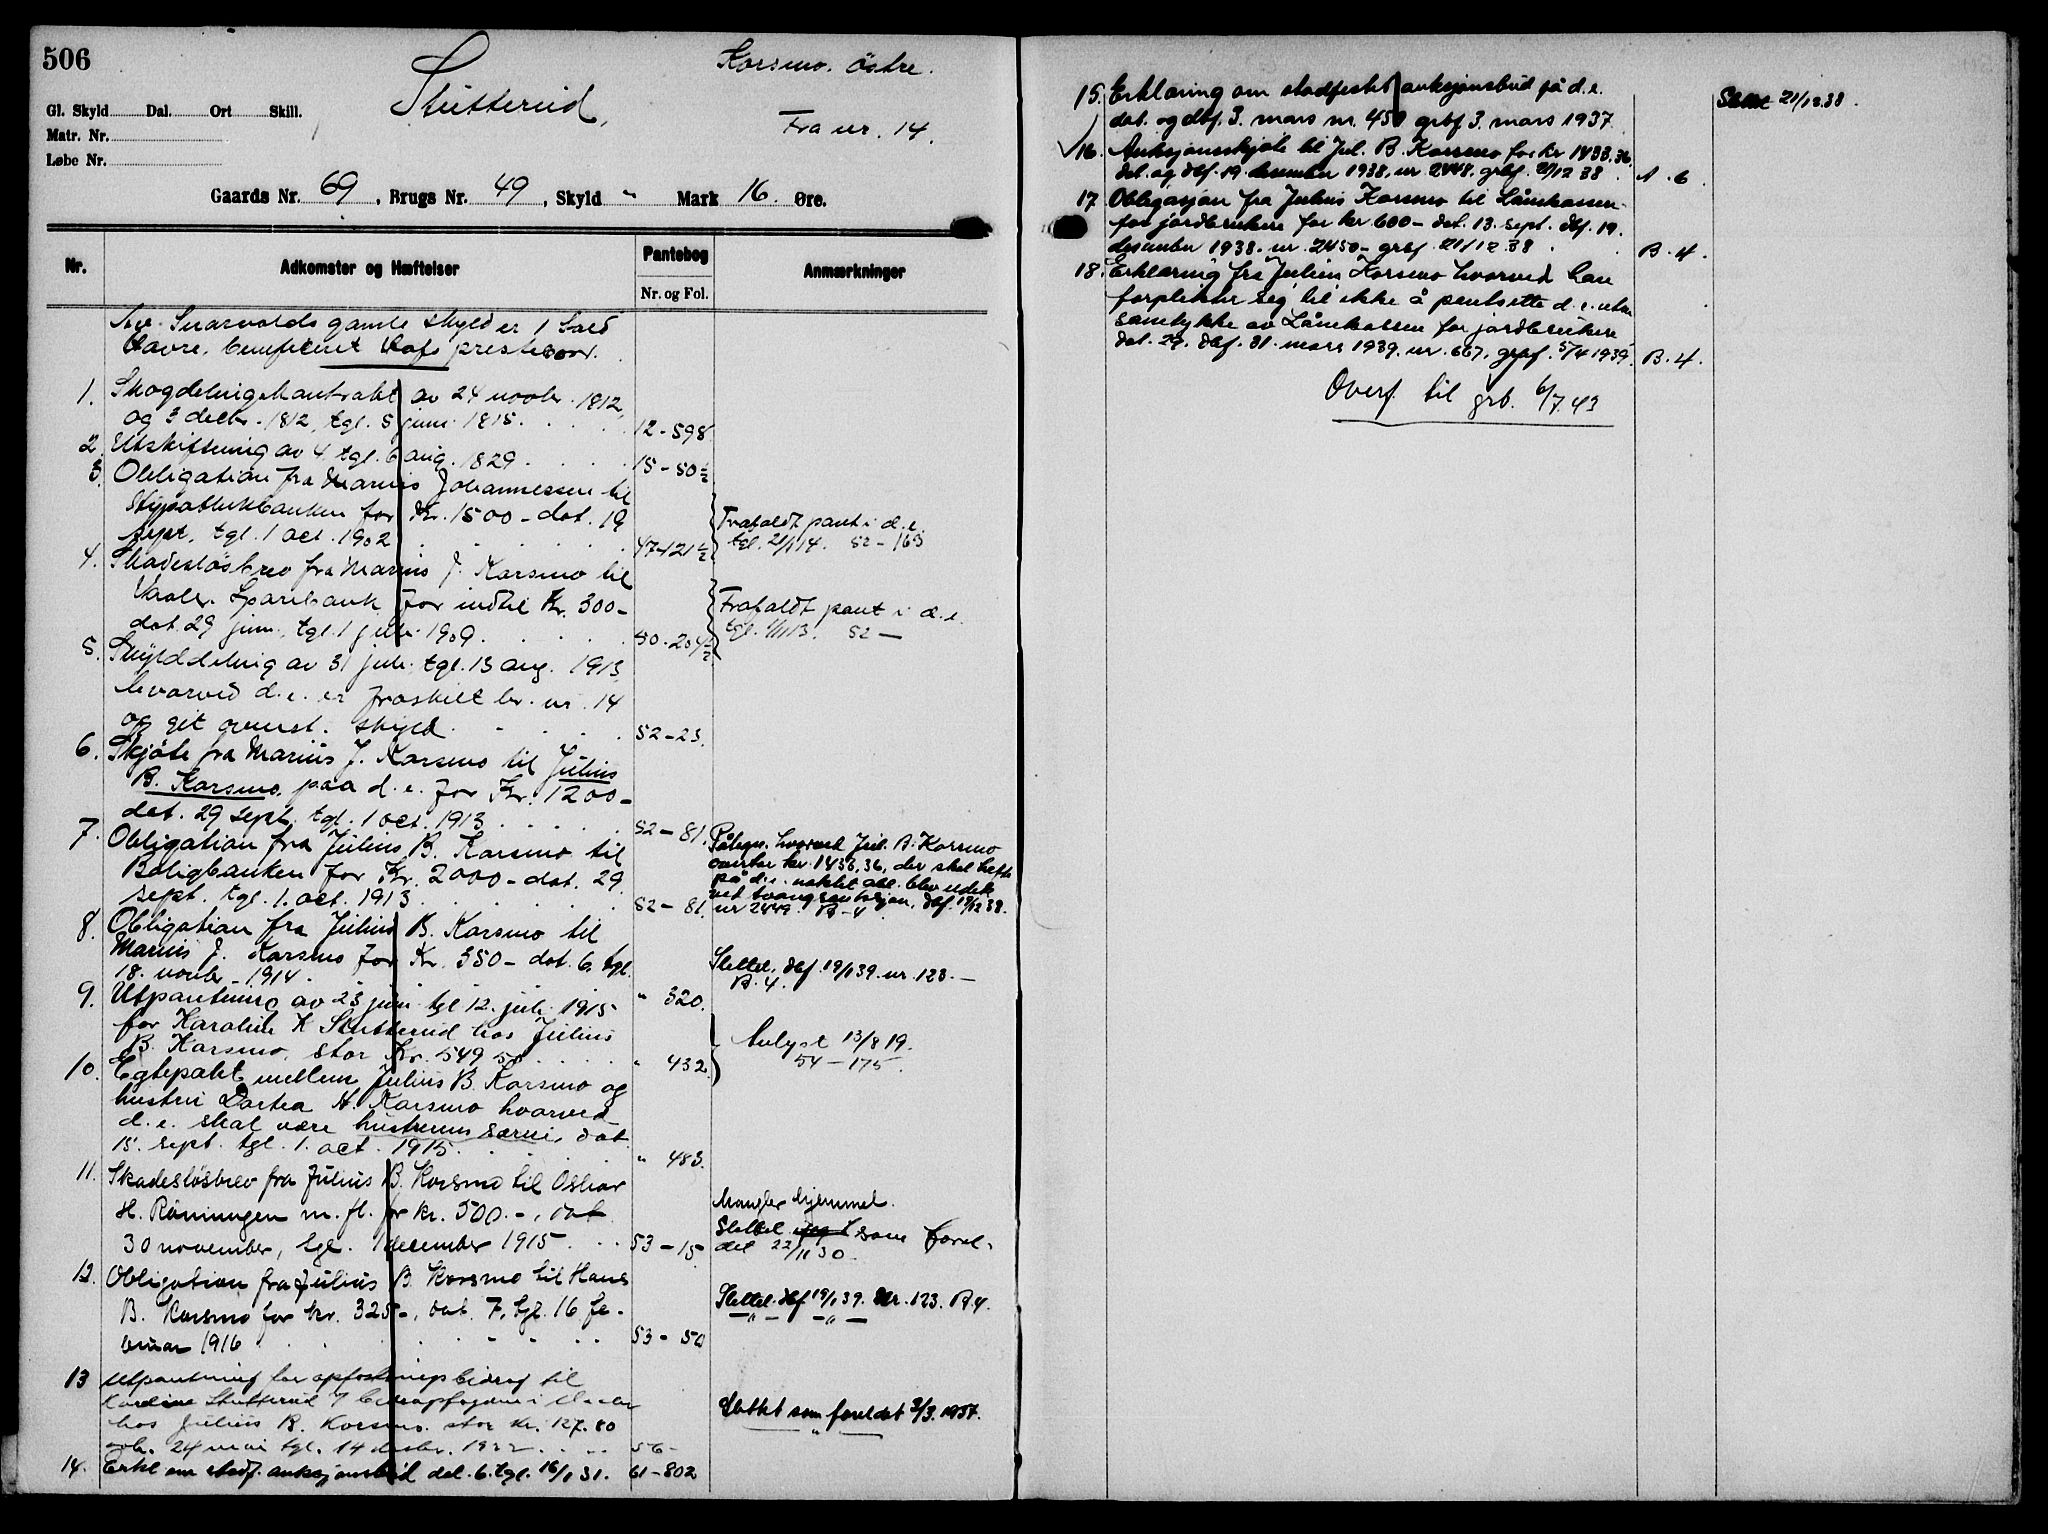 506
Stutterud,
Korsmo. Östre.
Fra nr. 14.
Gl. Skyld Dal. Ort Skill.
Matr. Nr.
Løbe Nr.
Gaards Nr. 69, Brugs Nr. 49, Skyld " Mark 16 Øre.
Nr.
Adkomster og Hæftelser
Pantebog
Nr. og Fol.
Anmærkninger
gamle skyld er 1
Havre. beneficeret Hofs prestebord.
1. Skogdelingskontrakt av 24 novbr. 1812,
og 3 decbr. 1812, tgl. 5 juni 1815. 12-598
2. Utskiftning av 4 tgl. 6 aug. 1829. 15-50½
3. Obligation fra Marius Johannessen til
Hypothekbanken for Kr. 1500- dat. 19
sept. tgl. 1 oct. 1902 47-121½
Frafaldt pant i d.e.
tgl. 21/1 14. 52-163
4. Skadesløsbrev fra Marius J. Korsmo til
Vaaler Sparebank for indtil Kr. 300-
dat. 29 juni, tgl. 1 juli 1909. 50-204½
Frafaldt pant i d.e.
tgl. 1/11 13. 52 —
5. Skylddeling av 31 juli tgl. 13 aug. 1913,
hvorved d.e. er fraskilt br. nr. 14
og git ovenst. skyld. 52-23.
6. Skjøte fra Marius J. Korsmo til Julius
B. Korsmo paa d.e. for Kr. 1200-
dat. 29 sept. tgl. 1 oct. 1913 52-81.
7. Obligation fra Julius B. Korsmo til
Boligbanken for Kr. 2000- dat. 29
sept. tgl. 1. oct. 1913 52-81.
Påtegn. hvorved Jul. B. Korsmo
overtar kr. 1433,36, der skal hefte
på d.e. uaktet obl. blev udekket
ved tvangsauksjon. dbf. 19/12 38.
nr 2449. B-4
8. Obligation fra Julius B. Korsmo til
Marius J. Korsmo for Kr. 350- dat. 6. tgl.
18. novbr. 1914. " 320.
Slettet, dbf. 19/1 39. nr. 123. —
B. 4.
9. Utpantning av 23 juni tgl 12. juli 1915
for Karoline K Stutterud hos Julius
B. Korsmo, stor Kr. 549 50 " 432.
Avlyst 13/8 19.
54-175.
10. Egtepakt mellem Julius B. Korsmo og
hustru Dortea N. Korsmo hvorved
d.e. skal være hustruens særeie, dat
15. sept. tgl. 1. oct. 1915. " 483.
11. Skadesløsbrev fra Julius B. Korsmo til Oskar
H. Rønningen m.fl. for kr. 500.-, dat
30 november, tgl. 1 december 1915 53-15.
Mangler hjemmel.
Slettet som forel-
det 22/11 30.
12. Obligation fra Julius B. Korsmo til Hans
B. Korsmo for kr. 325-, dat. 7, tgl. 16 fe-
bruar 1916 53-50
Slettet. dbf 19/1 39. Nr. 123. B.4.
13 Utpantning for opfostringsbidrag til
Karoline Stutterud
hos Julius B. Korsmo. stor kr. 127.80
24 mai tgl. 14 decbr. 1922 56-
Slettet som foreldet 3/3. 1937.
14. Erkl om stadf. auksjonsbud dat. 6. tgl. 16/1 31. 61-802
15. Erklæring om stadfestet auksjonsbud på d.e.
dat. og dbf. 3. mars nr. 450 grbf 3. mars 1937.
Slettet 21/12 38.
16. Auksjonsskjøte til Jul. B. Korsmo for kr 1433,36.
dat. og dbf. 19. desember 1938. nr 2448. grbf. 21/12 38. A. 6.
17 Obligasjon fra Julius Korsmo til Lånekassen
for jordbrukere for kr 600- dat. 13. sept. dbf. 19.
desember 1938. nr. 2450- grbf 21/12 38. B. 4.
18. Erklæring fra Julius Korsmo hvorved han
forplikter seg til ikke å pantsette d.e. uten
samtykke av Lånekassen for jordbrukere
dat. 29. dbf. 31. mars 1939. nr. 667. grbf. 5/4 1939. B. 4.
Overf til grb. 6/7. 43